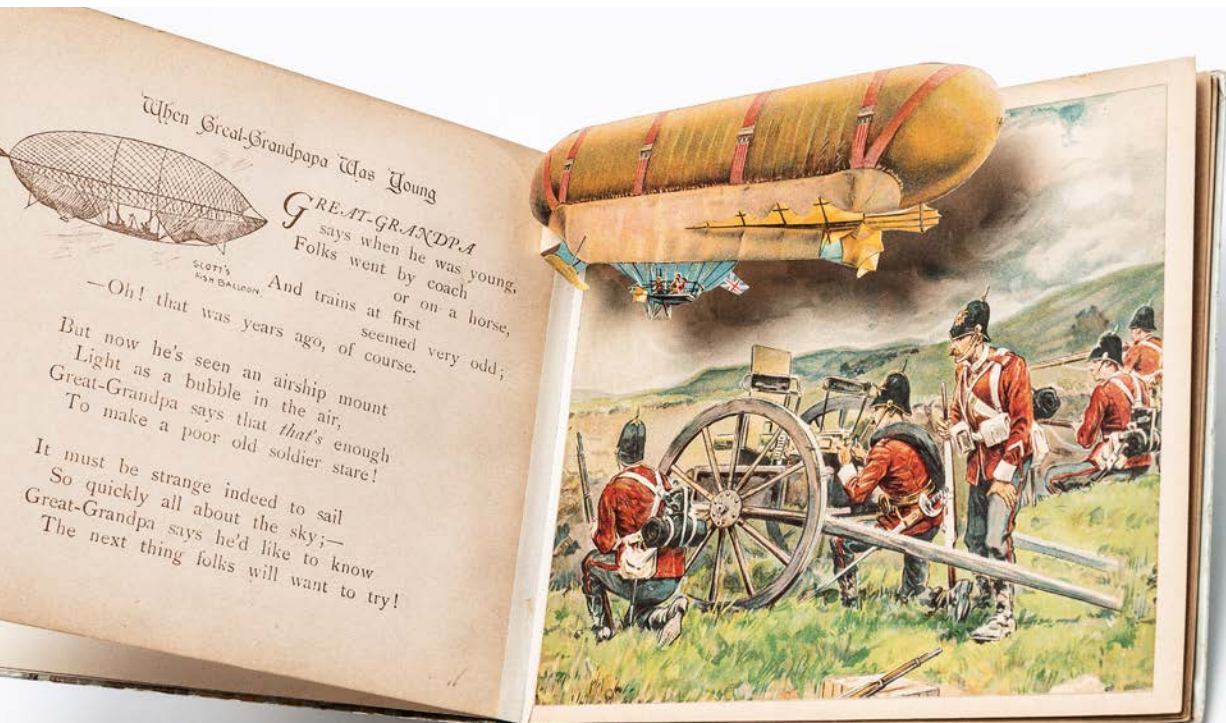 When Great-Grandpapa Was Young
SCOTT'S
FISH BALLOON.
GREAT-GRANDPA
says when he was young,
Folks went by coach
or on a horse,
And trains at first
seemed very odd;
—Oh! that was years ago, of course.
But now he's seen an airship mount
Light as a bubble in the air,
Great-Grandpa says that that's enough
To make a poor old soldier stare!
It must be strange indeed to sail
So quickly all about the sky;—
Great-Grandpa says he'd like to know
The next thing folks will want to try!